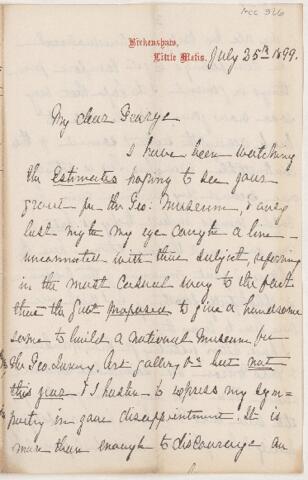 Acc 526
Birkenshaw,
Little Metis.
July 25th 1899.
My dear George
I have been watching
the Estimates hoping to see your
grant for the Geo: Museum, & only
last night my eye caught a line
unconnected with that subject, referring
in the most casual way to the fact
that the Govt proposed to give a handsome
some to build a national Museum for
the Geo. Survey, Art gallery &c but not
this year & I hasten to express my sym=
pathy in your disappointment. It is
more than enough to discourage an